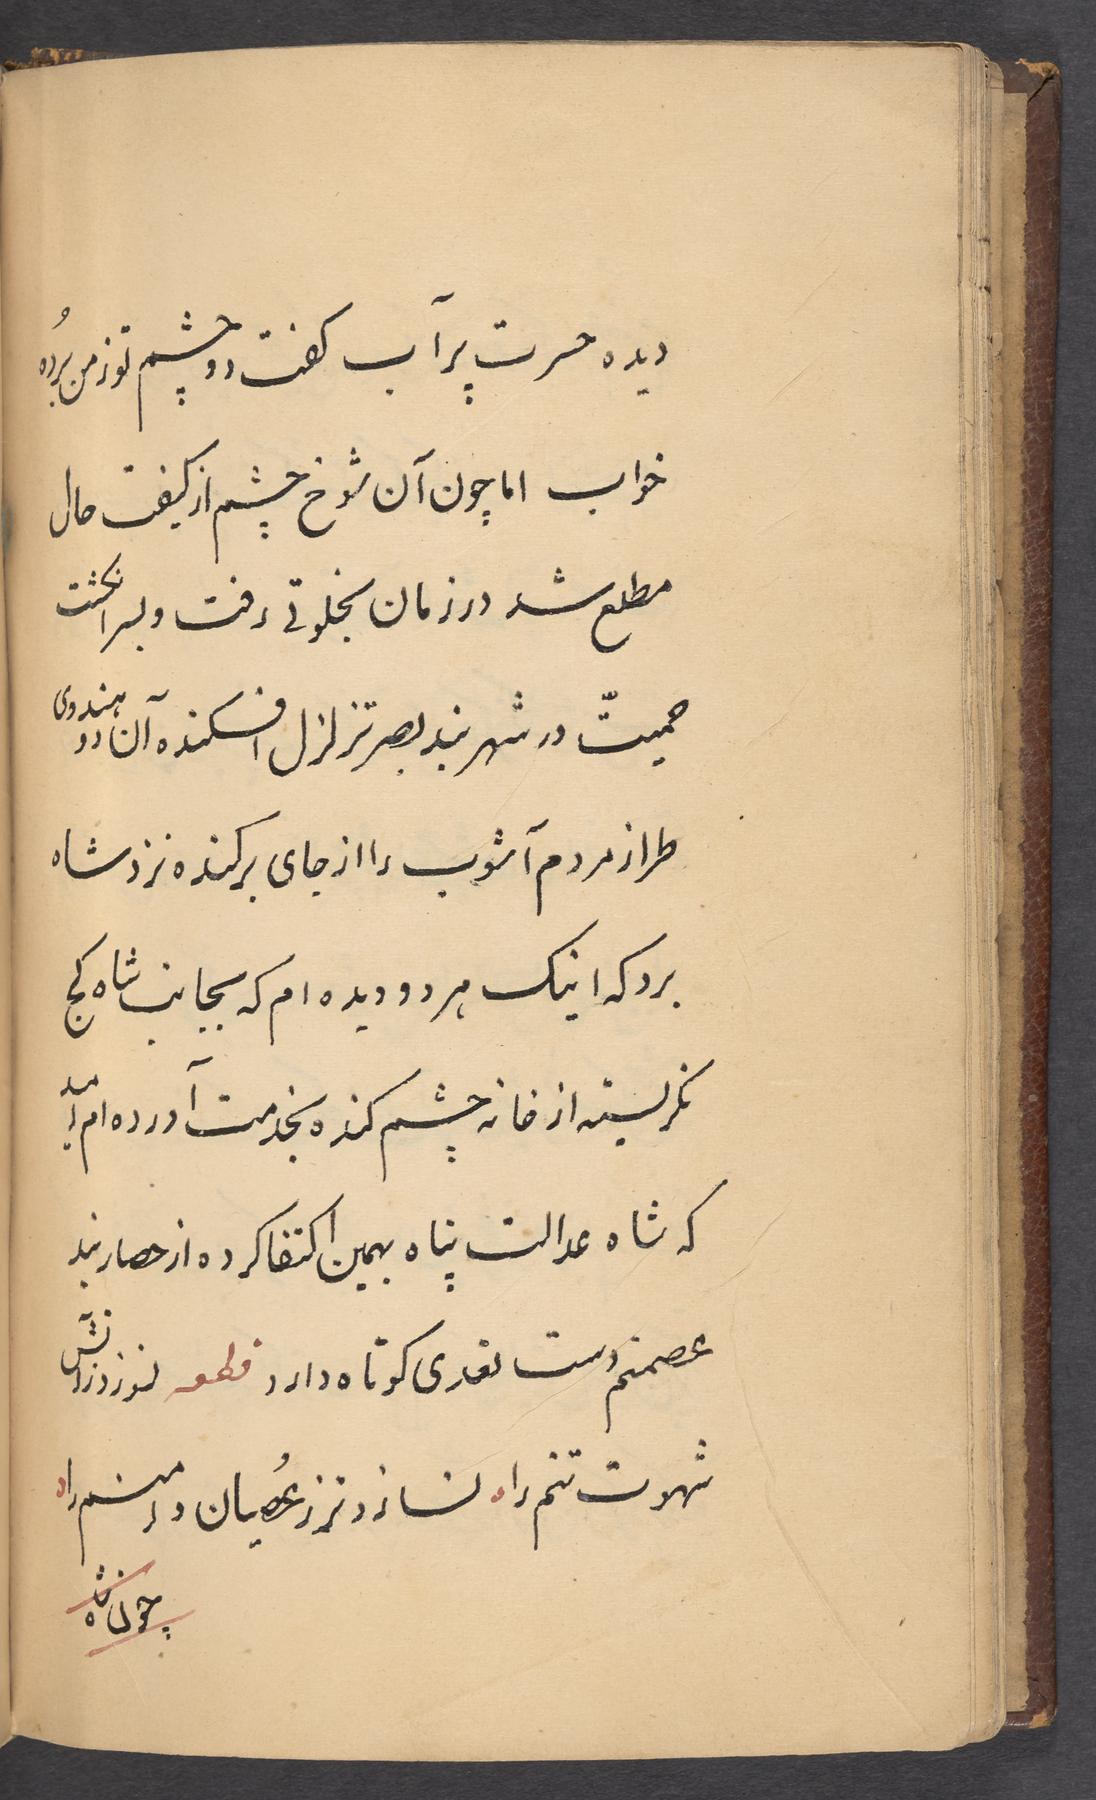 دیده حسرت پرآب گفت دو چشم توز من بُرده
خواب اما چون آن شوخ چشم از کیفیت حال
مطلع شد در زمان بخلوتی رفت و بسر انگشت
حمیتّ در شهر بند بصر تزلزل افکنده آن دو هندوی
طراز مردم آشوب را از جای برکنده نزد شاه
برد که اینک هر دو دیده ام که بجانب شاه کج
نگریسته از خانه چشم کنده بخدمت آورده ام امید
که شاه عدالت پناه بهمین اکتفا کرده از حصار بند
عصمتم دست تعدی کوتاه دارد قطعه نسوزد ز آتش
شهوت تنم راه نسازد تر ز عُصیان دامنم راه
چون شاه